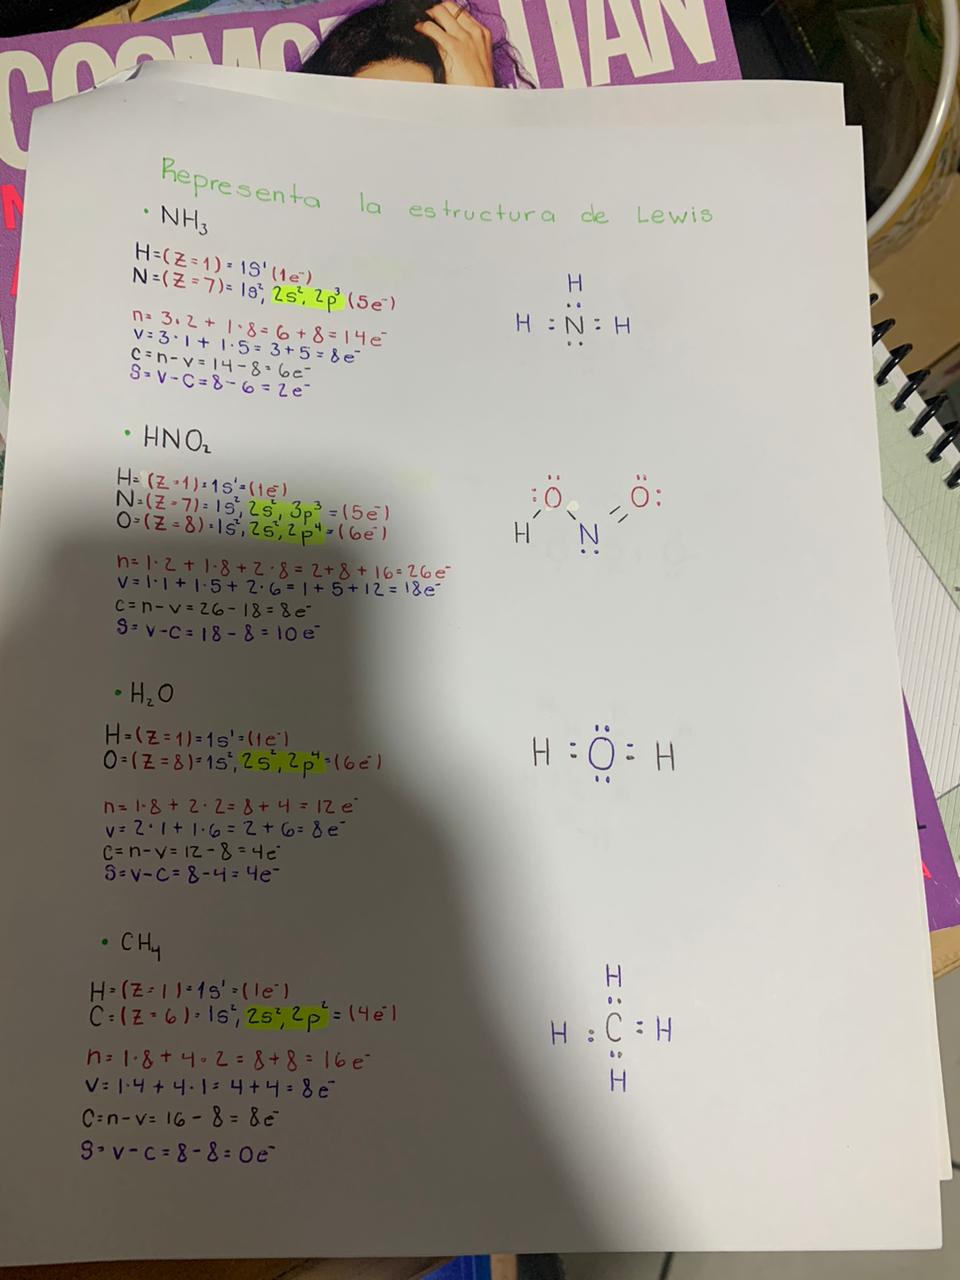 COSMO
TAN
Representa la estructura de Lewis
• NH₃
H=(Z=1)=1S¹(1e⁻)
N=(Z=7)=1s², 2s², 2p³(5e⁻)
n= 3·2 + 1·8=6+8=14e⁻
v=3·1 + 1·5= 3+5=8e⁻
C=n-v=14-8=6e⁻
S=v-C=8-6=2e⁻
H
..
H : N : H
..
• HNO₂
H=(Z=1)=1s¹=(1e⁻)
N=(Z=7)=1s², 2s², 3p³=(5e⁻)
O=(Z=8)=1s², 2s², 2p⁴=(6e⁻)
n=1·2 + 1·8+2·8=2+8+16=26e⁻
v=1·1+1·5+2·6=1+5+12=18e⁻
C=n-v=26-18=8e⁻
S=v-C=18-8=10e⁻
:O O:
H N
• H₂O
H=(Z=1)=1s¹=(1e⁻)
O=(Z=8)=1s², 2s², 2p⁴=(6e⁻)
n=1·8 + 2·2=8+4=12e⁻
v=2·1+1·6=2+6=8e⁻
C=n-v=12-8=4e⁻
S=v-C=8-4=4e⁻
..
H : O : H
..
• CH₄
H=(Z=1)=1s¹=(1e⁻)
C=(Z=6)=1s², 2s², 2p²=(4e⁻)
n=1·8+4·2=8+8=16e⁻
v=1·4+4·1=4+4=8e⁻
C=n-v=16-8=8e⁻
S=v-C=8-8=0e⁻
H
..
H : C : H
..
H